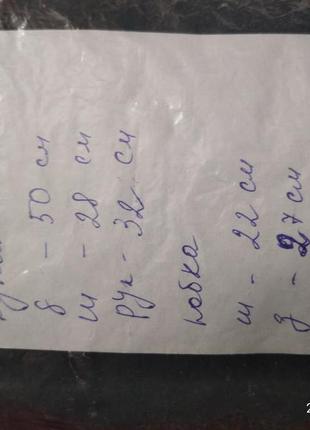 д - 50 см
ш - 28 см
рук - 32 см
юбка
ш - 22 см
д - 27 см